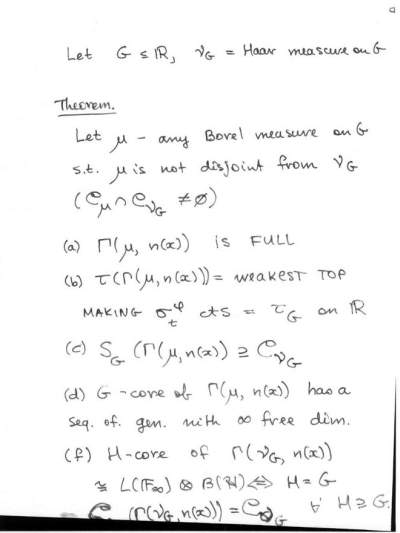 Let G ≤ ℝ, ν_G = Haar measure on G
Theorem.
Let μ - any Borel measure on G
s.t. μ is not disjoint from ν_G
(𝒞_μ ∩ 𝒞_ν_G ≠ ∅)
(a) Γ(μ, n(x)) is FULL
(b) τ(Γ(μ, n(x))) = WEAKEST TOP
MAKING σ_t^φ cts = τ_G on ℝ
(c) S_G (Γ(μ, n(x)) ⊇ 𝒞_ν_G
(d) G-core of Γ(μ, n(x)) has a
seq. of. gen. with ∞ free dim.
(f) H-core of Γ(ν_G, n(x))
≅ L(𝔽_∞) ⊗ B(ℋ) ⇔ H = G
(Γ(ν_G, n(x)) = ∀ H ⊇ G.